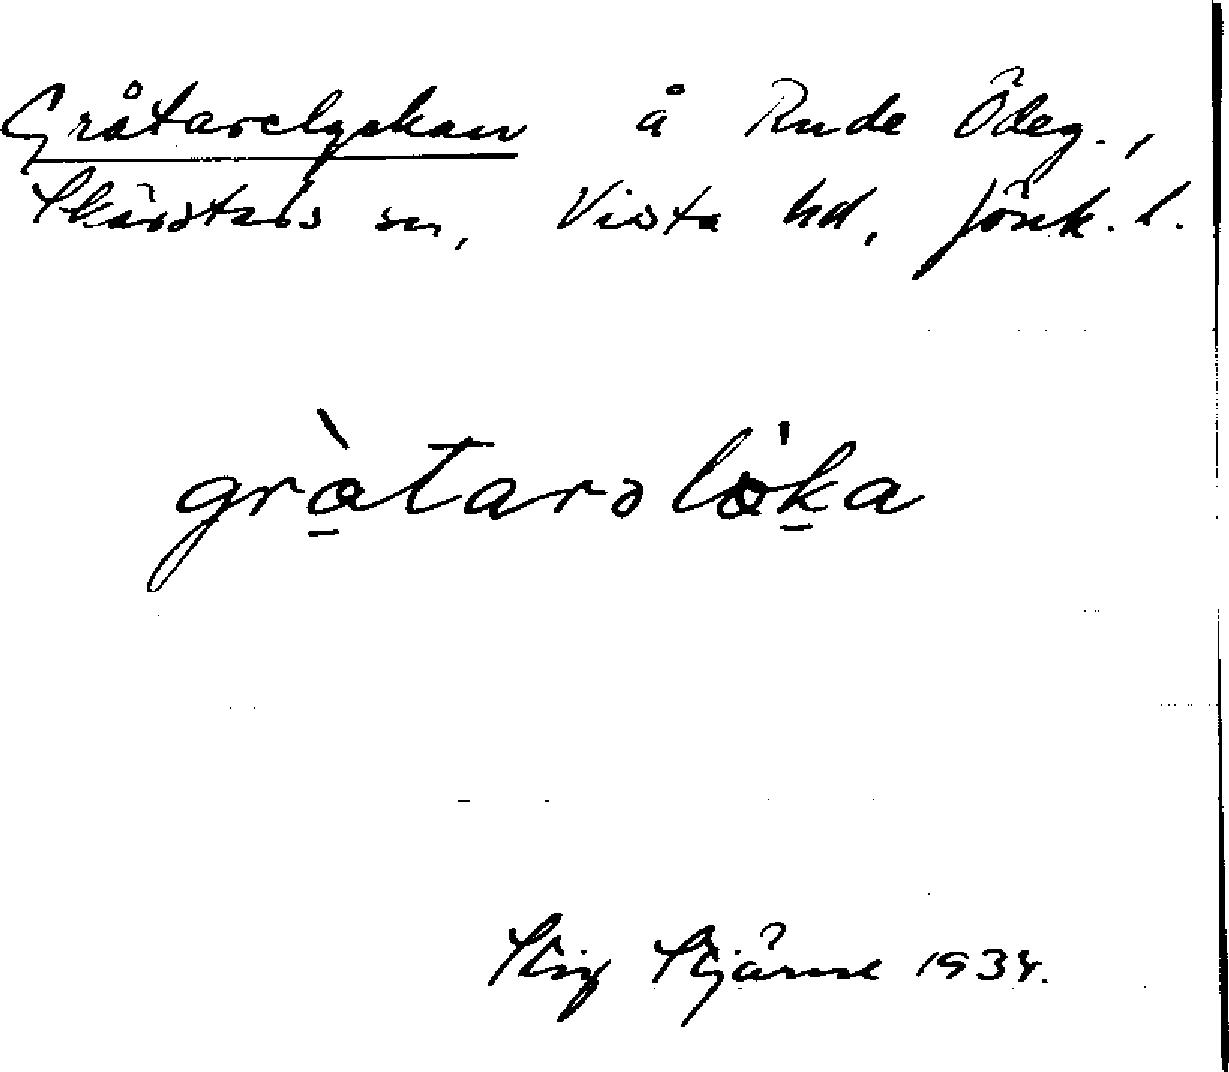 Gråtarelyckan å Rude Ödeg.,
Skärstads sn, Vista hd, Jönk. l.
gràtarəlöka
Stig Stjärne 1934.